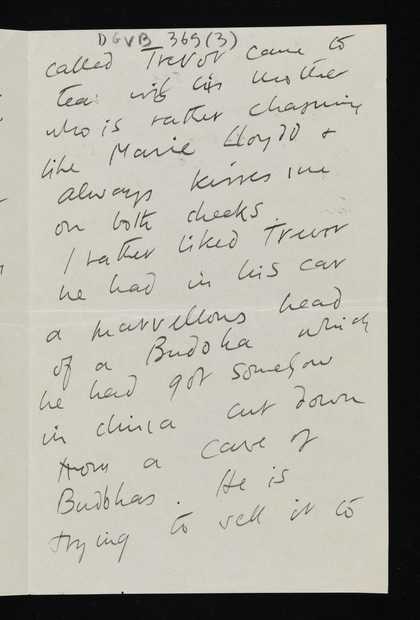 DGVB 369(3)
called Trevor came to
tea with his mother
who is rather charming
like Marie Lloyd &
always kisses me
on both cheeks.
I rather liked Trevor
he had in his car
a marvellous head
of a Buddha which
he had got somehow
in china cut down
from a cave of
Buddhas. He is
trying to sell it to